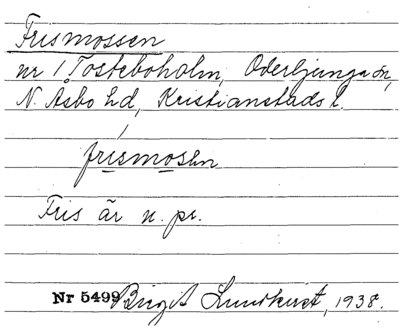 Frismossen
nr 1 Tosteboholm, Oderljunga sn,
N. Åsbo hd, Kristianstads l.
frismosen
Fris är n. pr.
Nr 5499 Birgit Lundkvist, 1938.